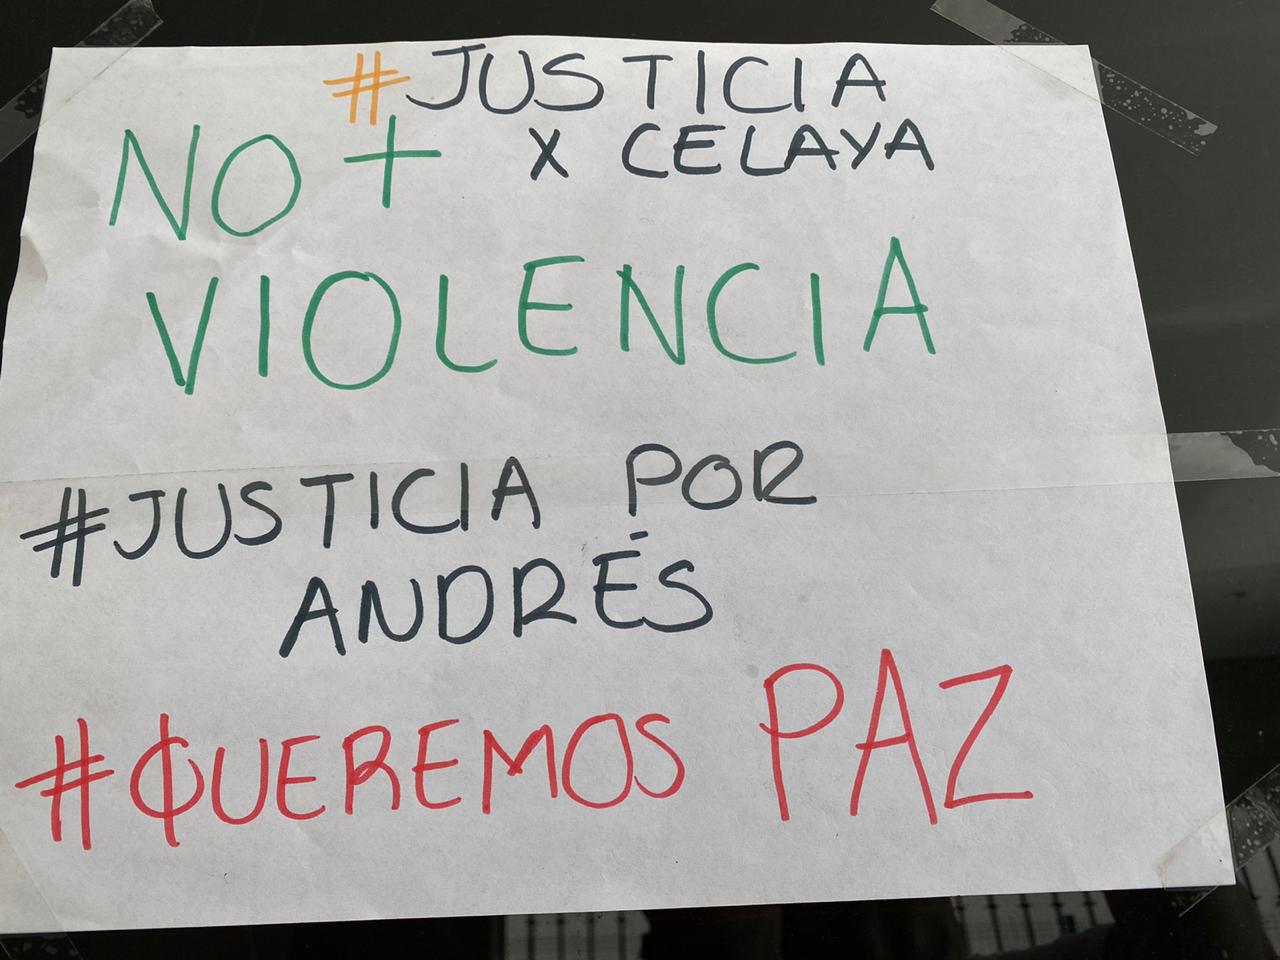 #JUSTICIA
X CELAYA
NO +
VIOLENCIA
#JUSTICIA POR
ANDRÉS
#QUEREMOS PAZ